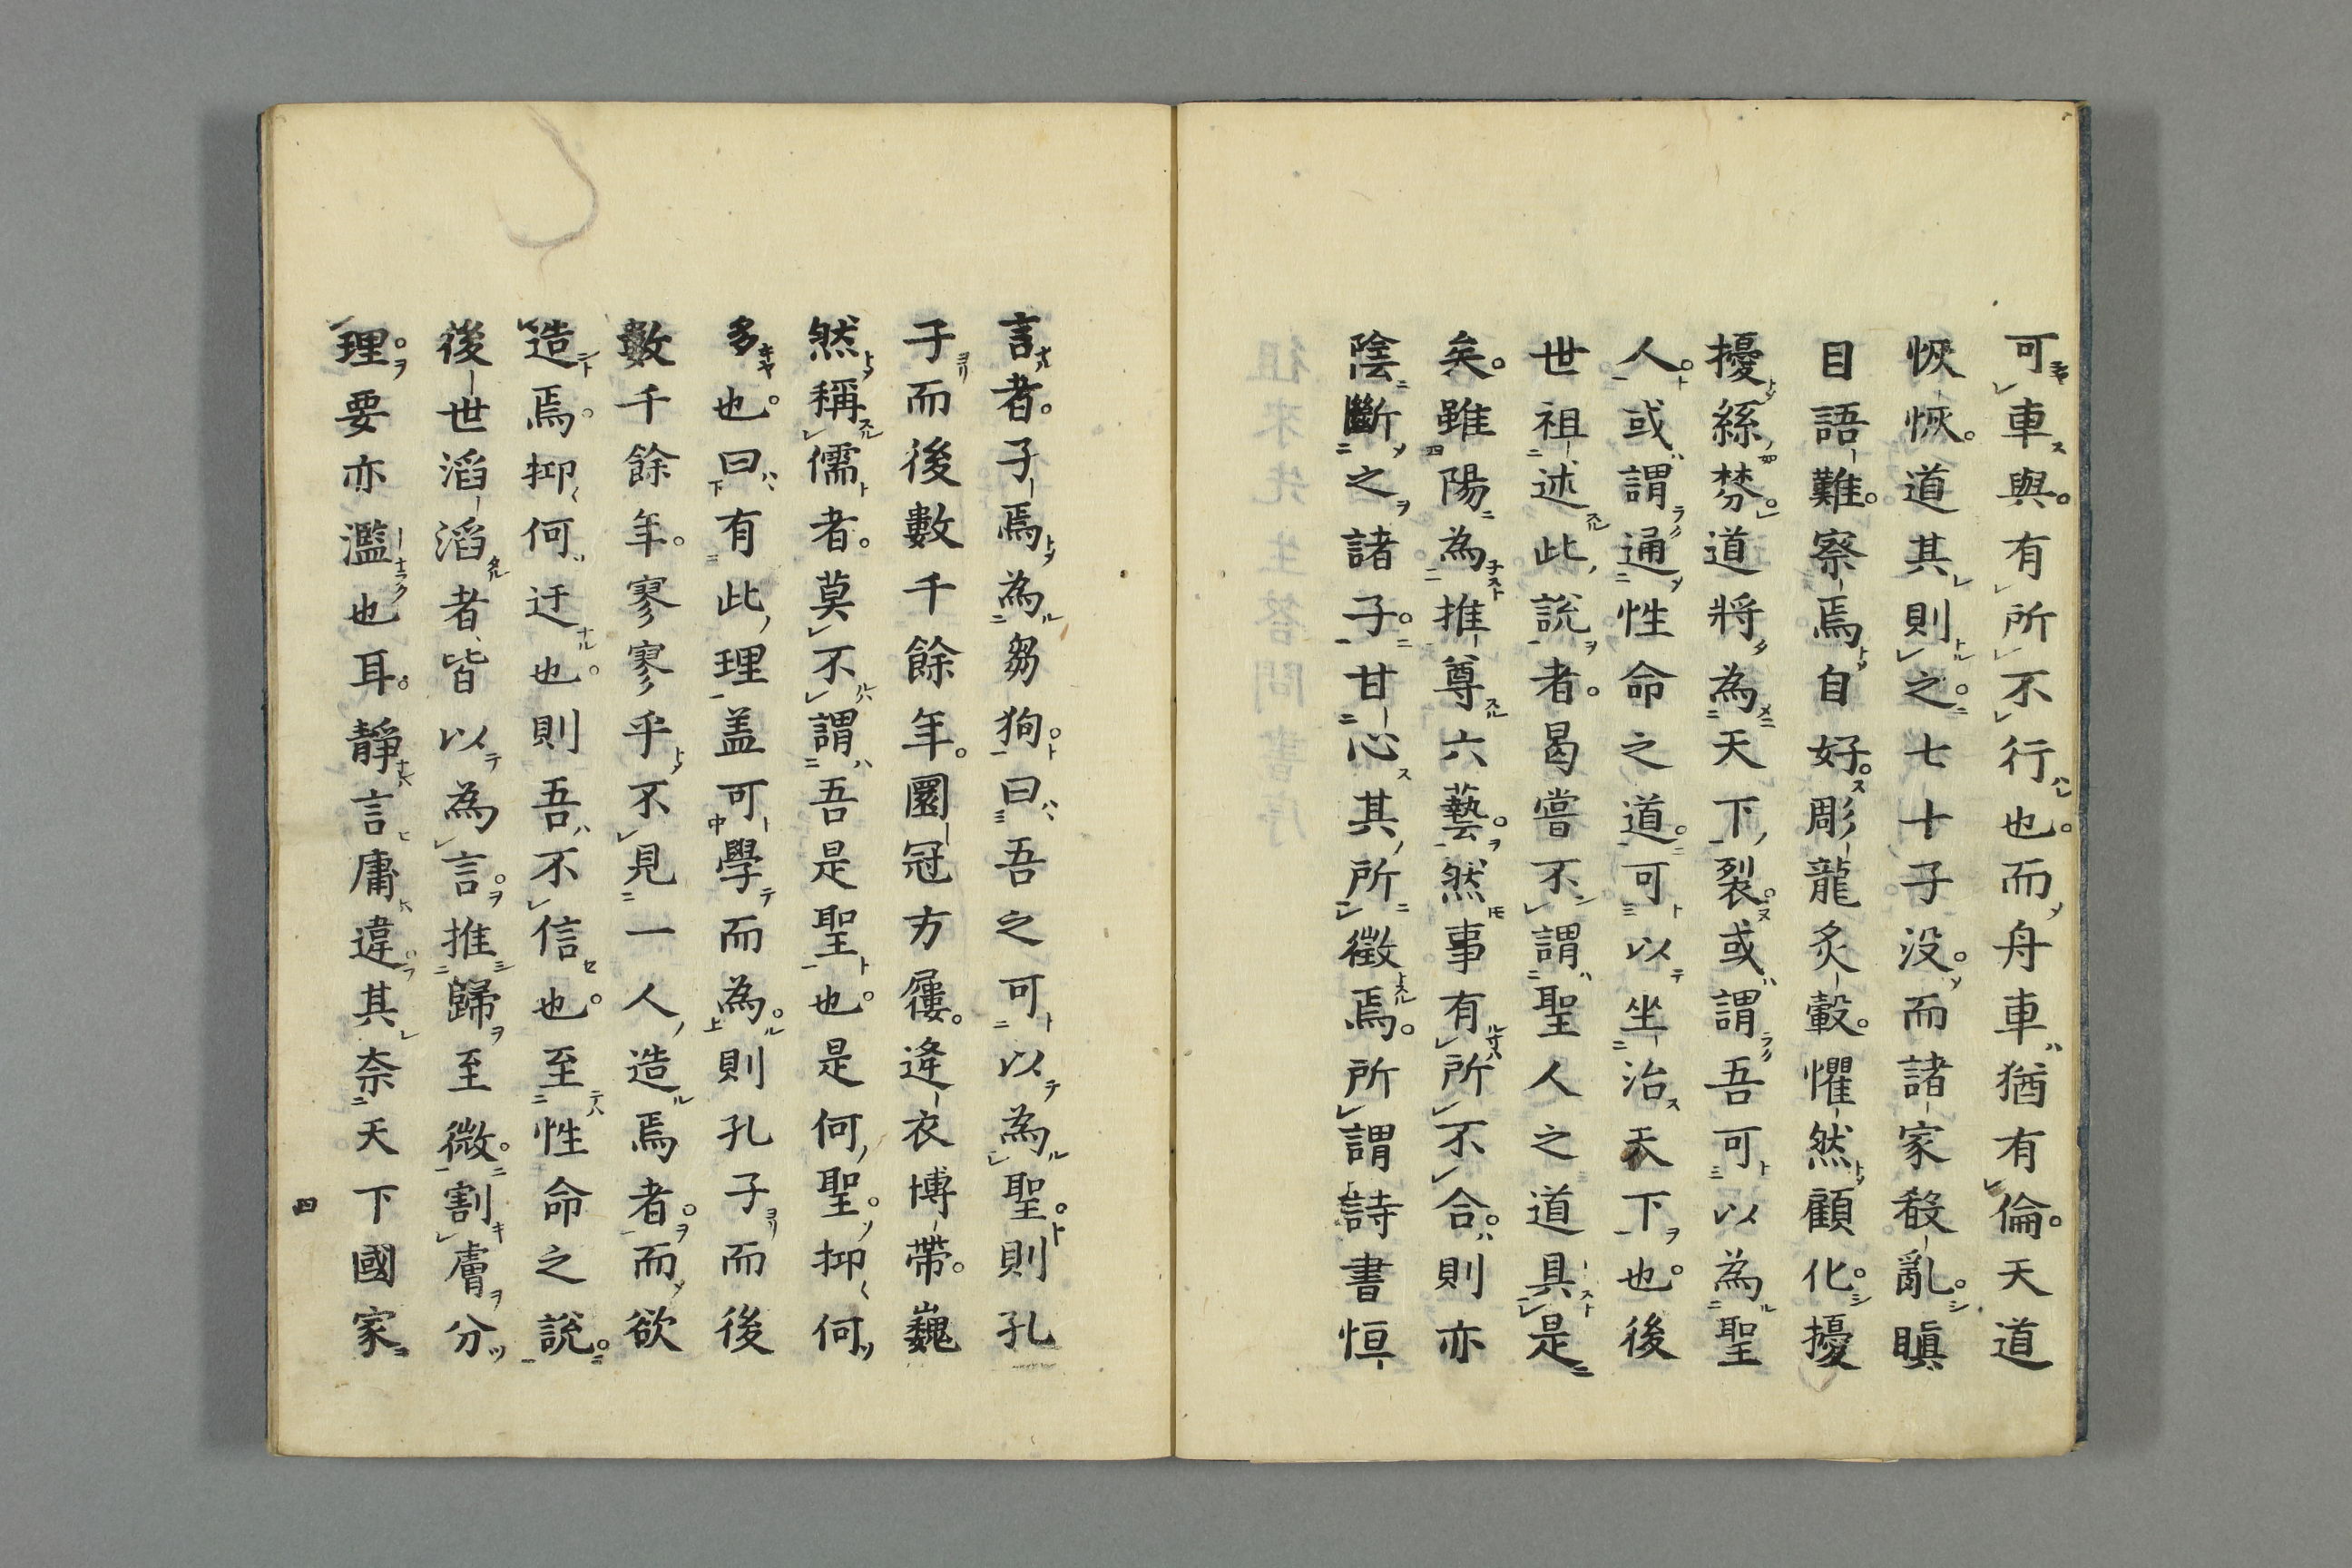 可車與有所不行也而舟車猶有倫天道
恢恢道其則之七十子没而諸家殽亂瞋
目語難察焉自好彫龍炙轂懼然顧化擾
擾絲棼道將為天下裂或謂吾可以為聖
人或謂通性命之道可以坐治天下也後
世祖述此説者曷嘗不謂聖人之道具是
矣雖陽為推尊六藝然事有所不合則亦
陰斷之諸子甘心其所徵焉所謂詩書恒
言者子焉為芻狗曰吾之可以為聖則孔
子而後數千餘年圜冠方屨逢衣博帶巍
然稱儒者莫不謂吾是聖也是何聖抑何
多也曰有此理盖可學而為則孔子而後
數千餘年寥寥乎不見一人造焉者而欲
造焉抑何迂也則吾不信也至性命之説
後世滔滔者皆以為言推歸至微割膚分
理要亦濫也耳靜言庸違其奈天下國家
四